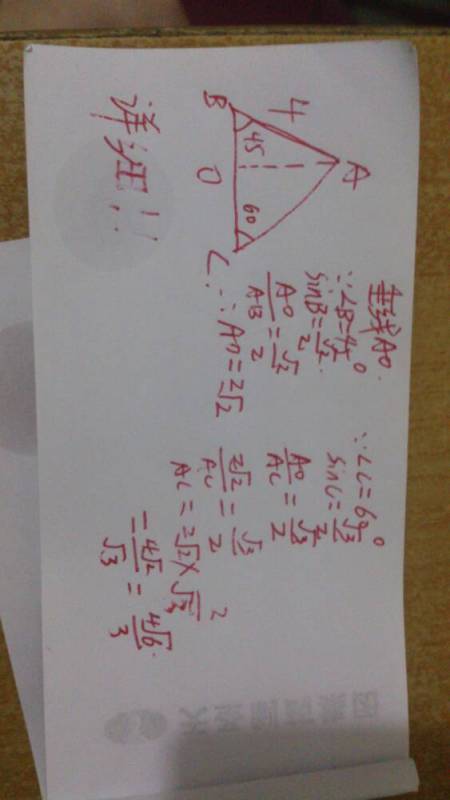 A
4
B
45
60
O
C
垂线AO.
∵∠B=45°
sinB=√2/2.
AO/AB=√2/2
∴AO=2√2
∵∠C=60°
sinC=√3/2
AO/AC=√3/2
2√2/AC=√3/2
AC=2√2×2/√3
=4√2/√3=4√6/3.
详细!!